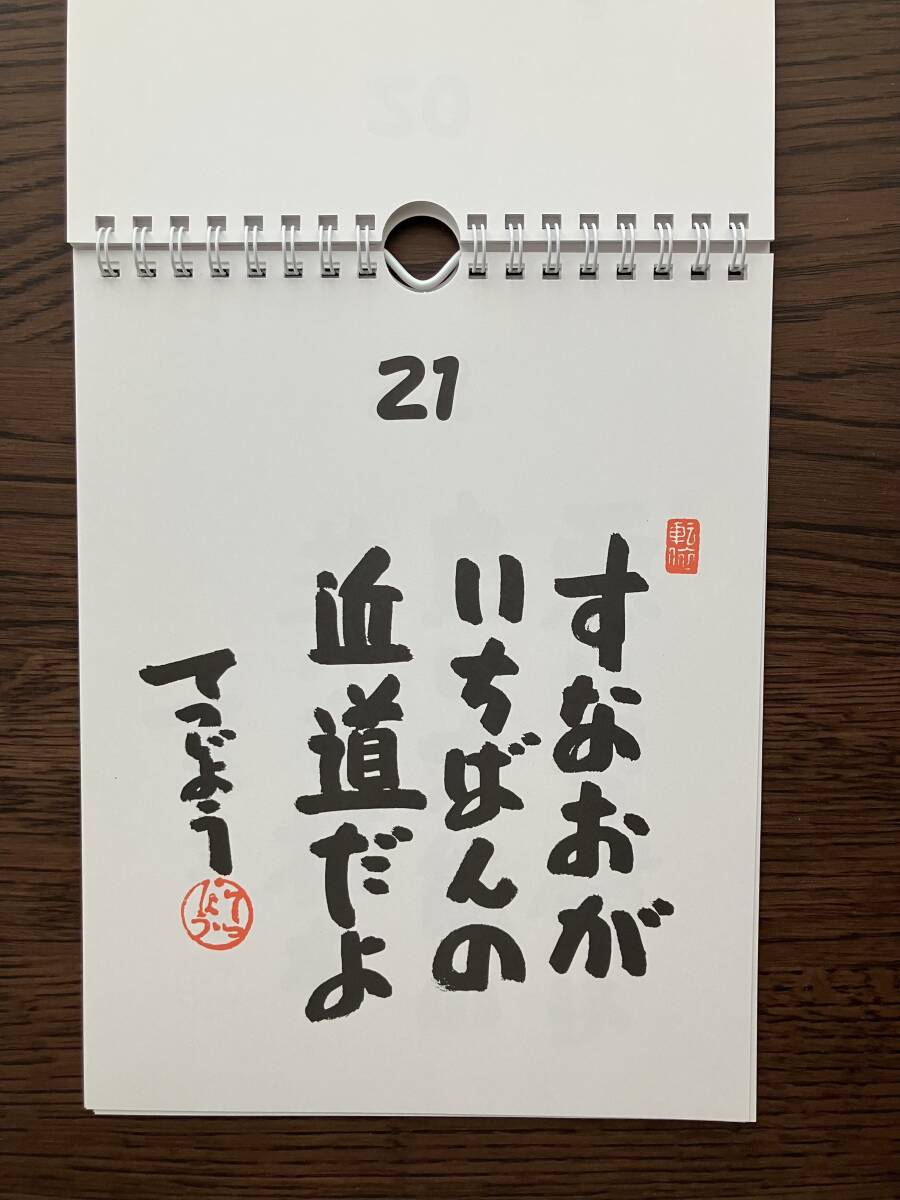 21
すなおが
いちばんの
近道だよ
てつじょう